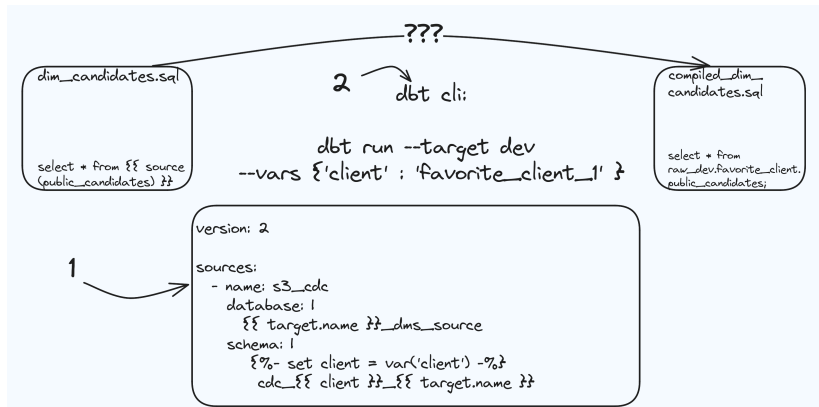 ???
dim_candidates.sql
select * from {{ source
(public_candidates) }}
2
dbt cli:
dbt run --target dev
--vars {'client' : 'favorite_client_1' }
compiled_dim_
candidates.sql
select * from
raw_dev.favorite_client.
public_candidates;
1
version: 2
sources:
- name: s3_cdc
database: |
{{ target.name }}_dms_source
schema: |
{%- set client = var('client') -%}
cdc_{{ client }}_{{ target.name }}